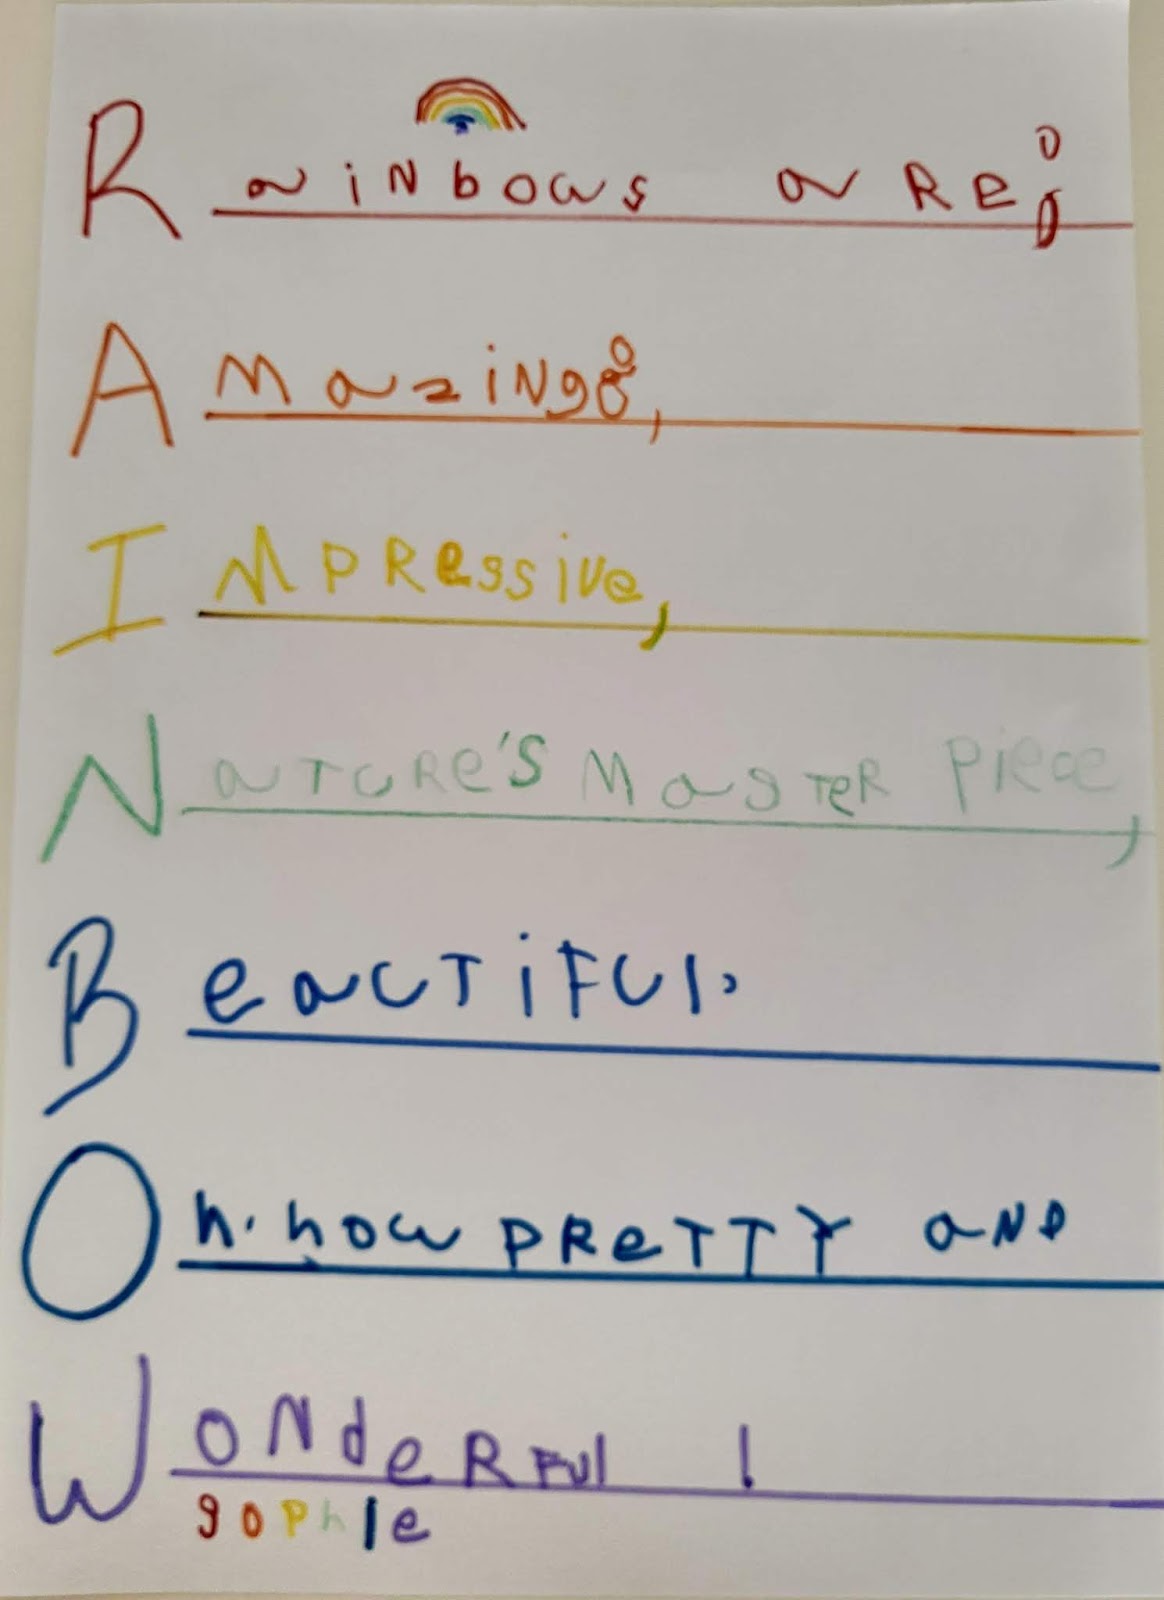 Rainbows are:
Amazing,
Impressive,
Nature's Master piece,
Beautiful,
Oh. how pretty and
Wonderful !
sophie